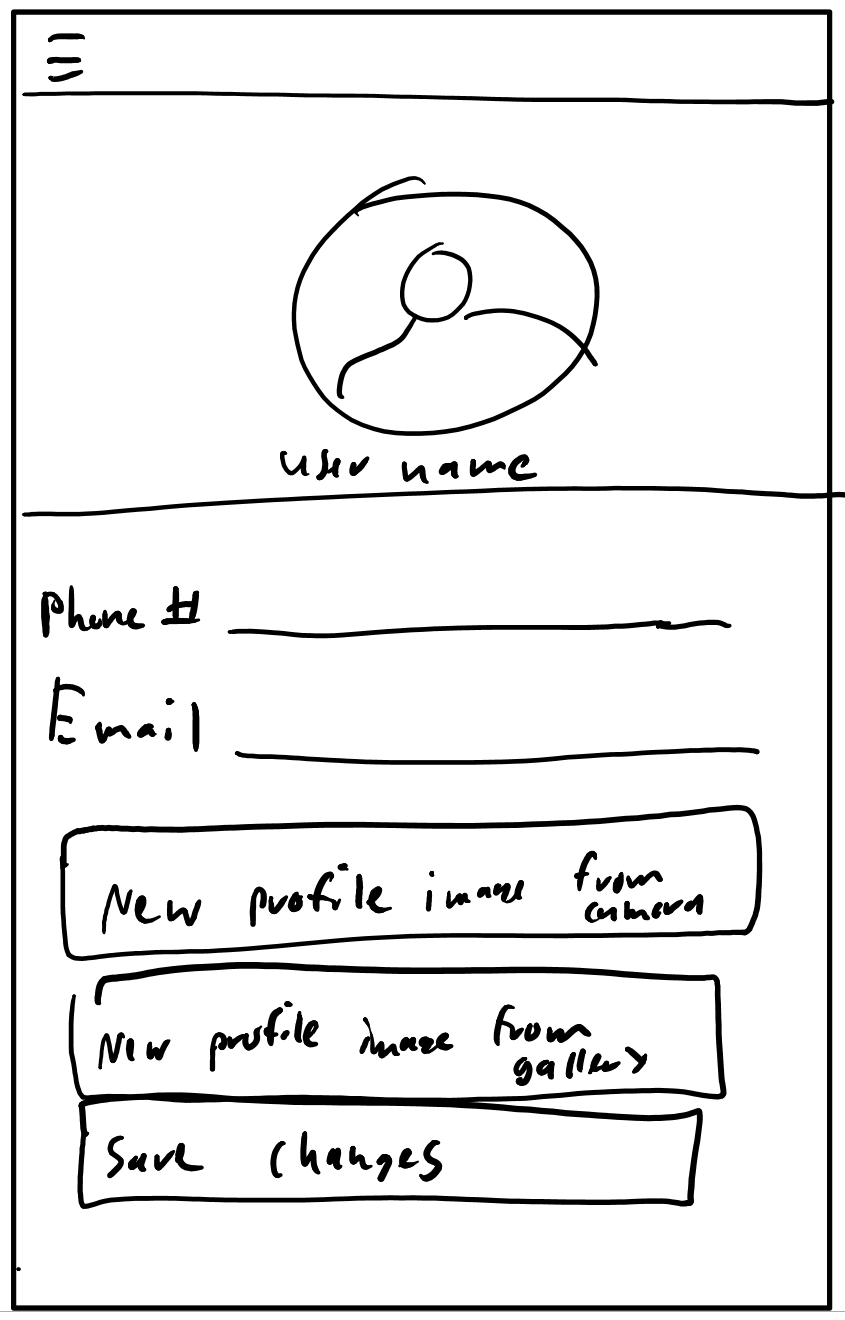 user name
Phone #
Email
New profile image from
camera
New profile image from
gallery
Save changes